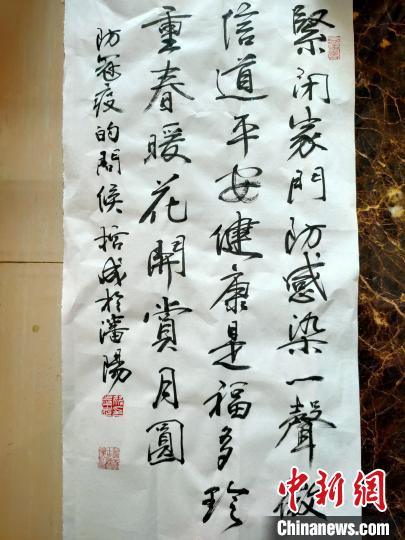 緊闭家門防感染一聲微
信道平安健康是福多珍
重春暖花開賞月圓
防冠疫的問候 成於瀋陽
中新網
www.chinanews.com